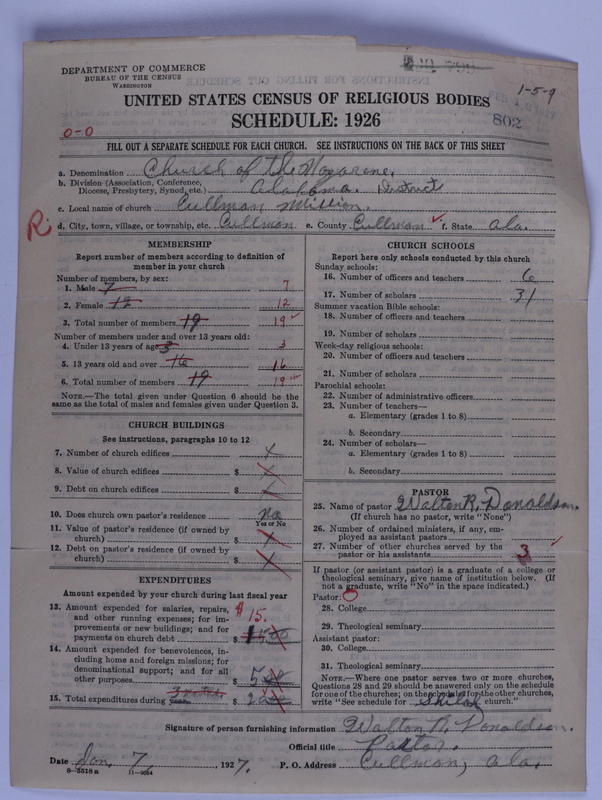 DEPARTMENT OF COMMERCE
BUREAU OF THE CENSUS
WASHINGTON
1-5-9
UNITED STATES CENSUS OF RELIGIOUS BODIES
SCHEDULE: 1926
802
0-0
FILL OUT A SEPARATE SCHEDULE FOR EACH CHURCH. SEE INSTRUCTIONS ON THE BACK OF THIS SHEET
a. Denomination Church of the Nazarene.
b. Division (Association, Conference, Diocese, Presbytery, Synod, etc.) Alabama District
c. Local name of church Cullman Mission.
R. d. City, town, village, or township, etc. Cullman e. County Cullman f. State Ala.
MEMBERSHIP
Report number of members according to definition of
member in your church
Number of members, by sex:
1. Male 7 7
2. Female 12 12
3. Total number of members 19 19
Number of members under and over 13 years old:
4. Under 13 years of age 3 3
5. 13 years old and over 16 16
6. Total number of members 19 19
NOTE.—The total given under Question 6 should be the
same as the total of males and females given under Question 3.
CHURCH BUILDINGS
See instructions, paragraphs 10 to 12
7. Number of church edifices x
8. Value of church edifices $ x
9. Debt on church edifices $ x
10. Does church own pastor's residence No
Yes or No
11. Value of pastor's residence (if owned by
church) $ x
12. Debt on pastor's residence (if owned by
church) $ x
EXPENDITURES
Amount expended by your church during last fiscal year
13. Amount expended for salaries, repairs,
and other running expenses; for im-
provements or new buildings; and for
payments on church debt $ 15.
14. Amount expended for benevolences, in-
cluding home and foreign missions; for
denominational support; and for all
other purposes $ 5
15. Total expenditures during year $
CHURCH SCHOOLS
Report here only schools conducted by this church
Sunday schools:
16. Number of officers and teachers 6
17. Number of scholars 31
Summer vacation Bible schools:
18. Number of officers and teachers
19. Number of scholars
Week-day religious schools:
20. Number of officers and teachers
21. Number of scholars
Parochial schools:
22. Number of administrative officers
23. Number of teachers—
a. Elementary (grades 1 to 8)
b. Secondary
24. Number of scholars—
a. Elementary (grades 1 to 8)
b. Secondary
PASTOR
25. Name of pastor Walton R. Donaldson.
(If church has no pastor, write "None")
26. Number of ordained ministers, if any, em-
ployed as assistant pastors
27. Number of other churches served by the
pastor or his assistants 3
If pastor (or assistant pastor) is a graduate of a college or
theological seminary, give name of institution below. (If
not a graduate, write "No" in the space indicated.)
Pastor: 0
28. College
29. Theological seminary
Assistant pastor:
30. College
31. Theological seminary
NOTE.—Where one pastor serves two or more churches,
Questions 28 and 29 should be answered only on the schedule
for one of the churches; on the schedules for the other churches,
write "See schedule for Shiloh church."
Signature of person furnishing information Walton R. Donaldson.
Official title Pastor.
Date Jan. 7, 1927. P. O. Address Cullman, Ala.
8-5518a 11-9054